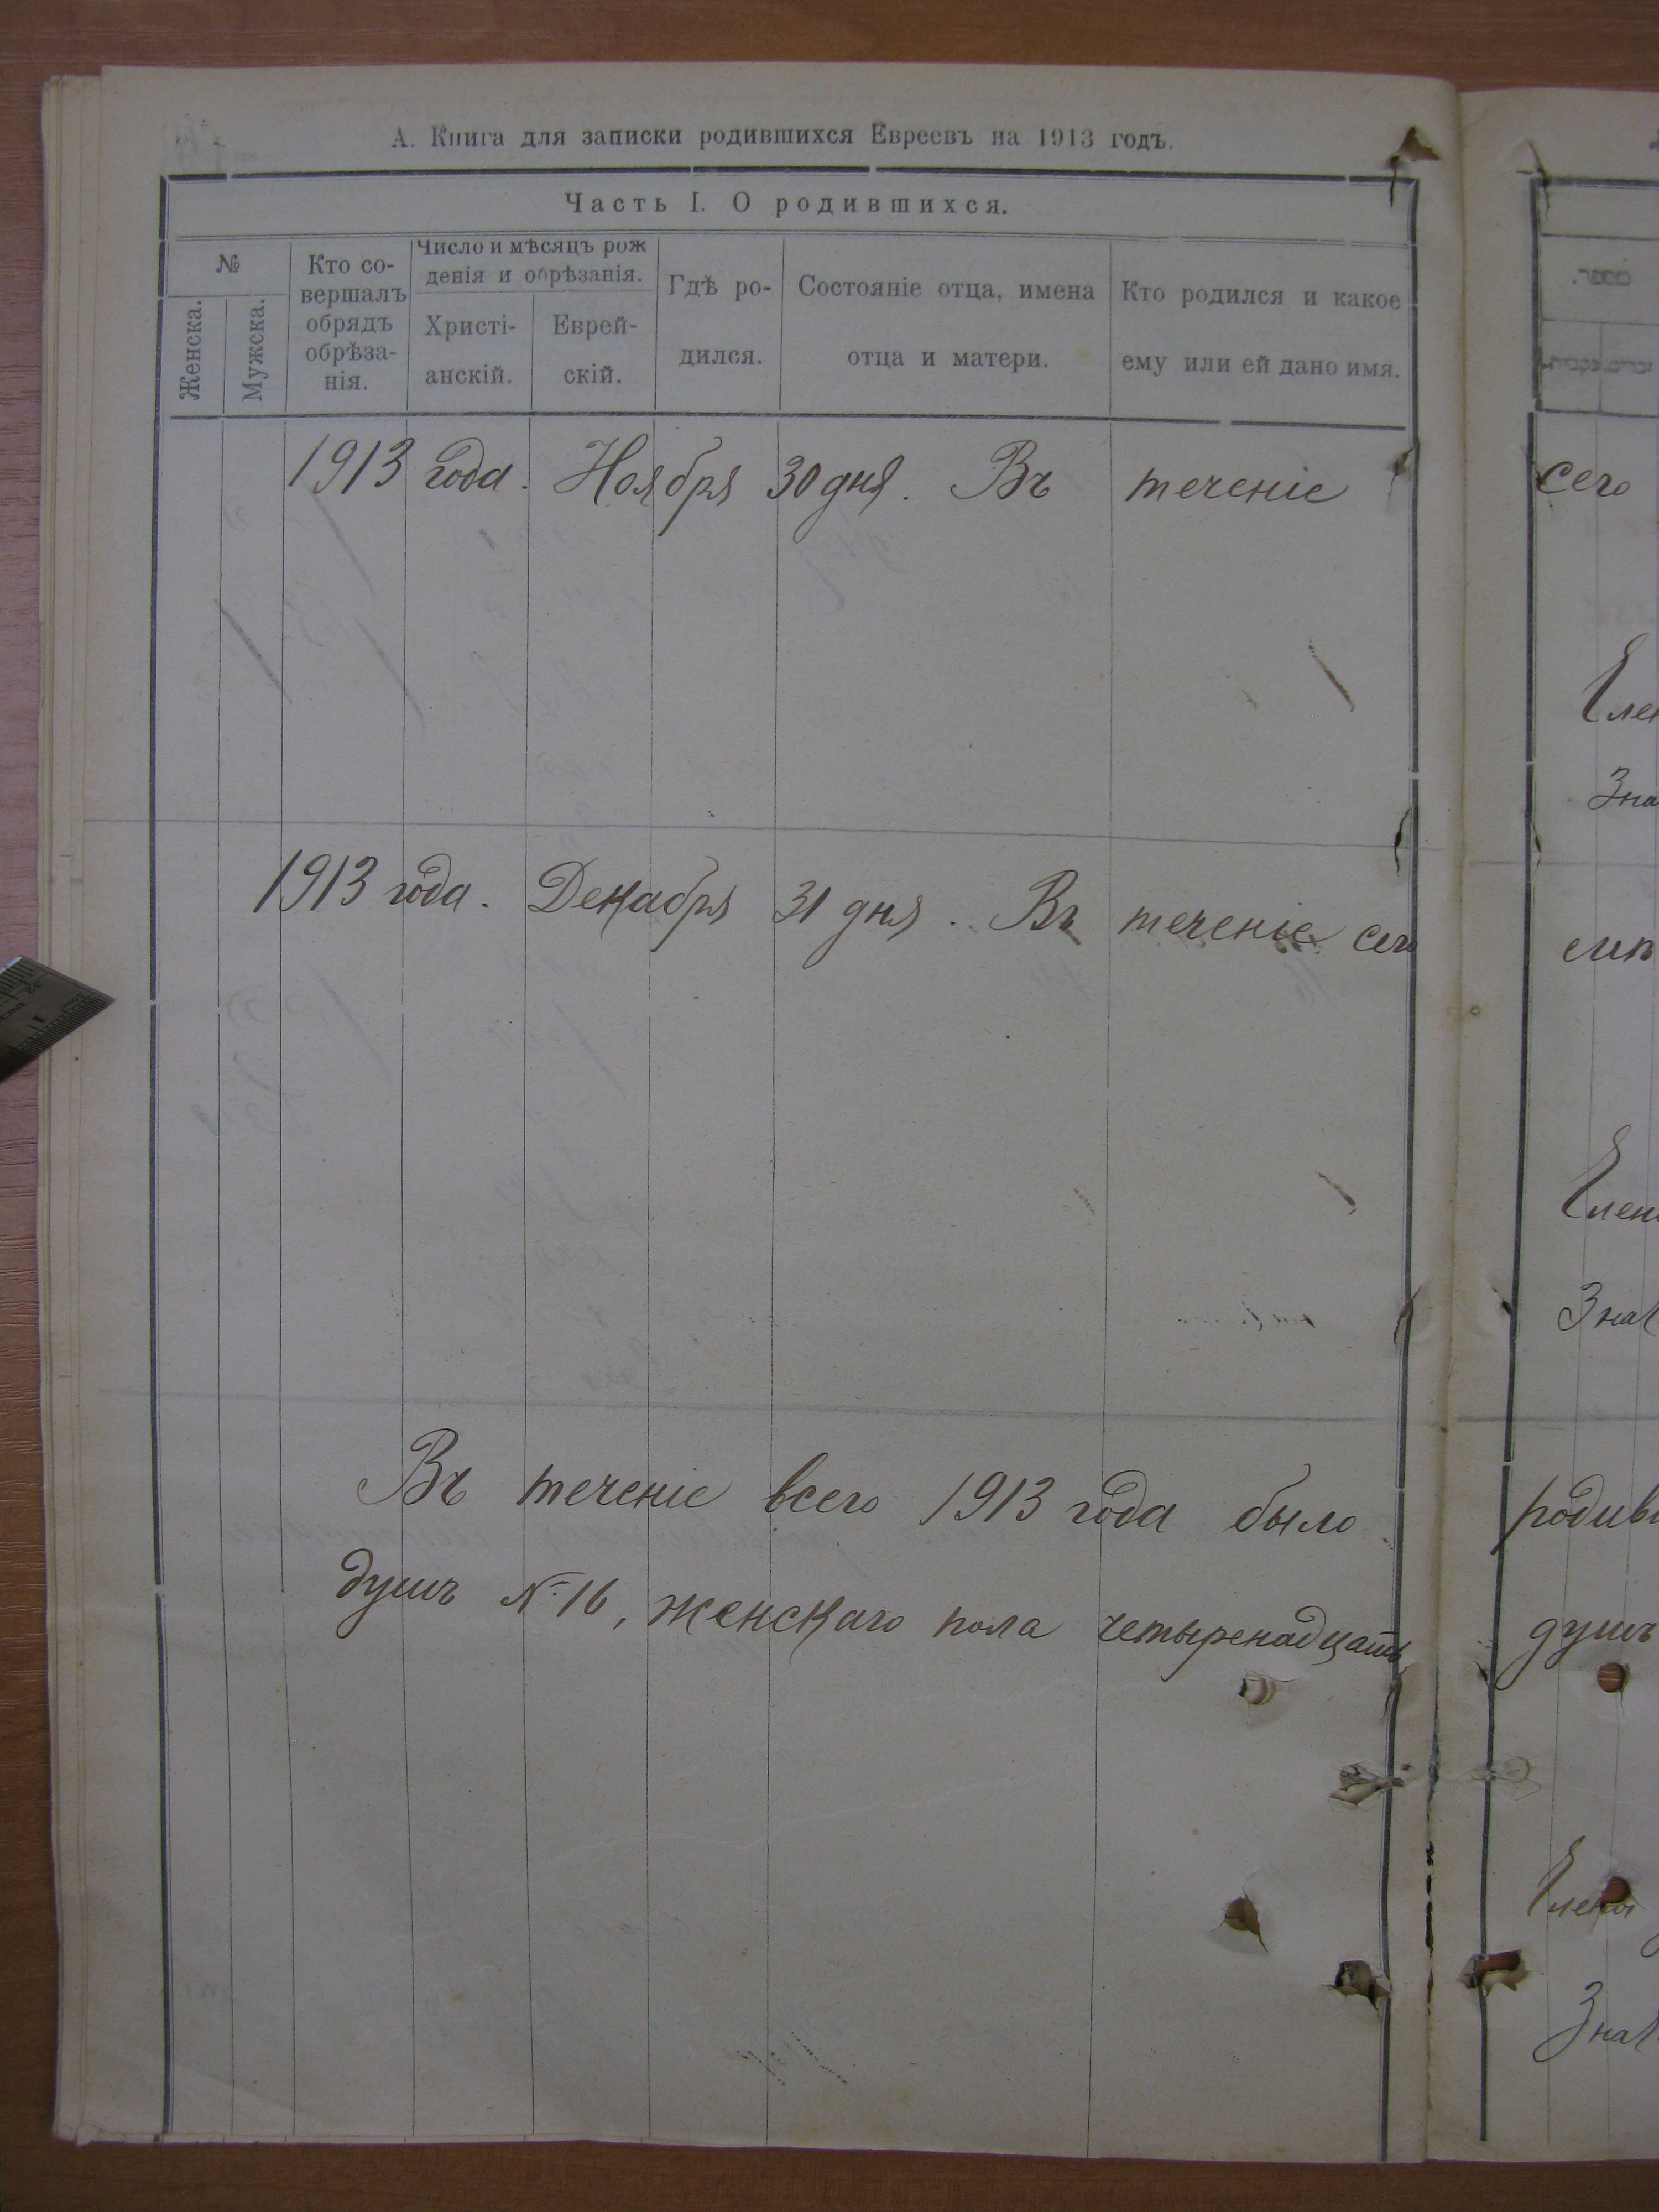 А. Книга для записки родившихся Евреевъ на 1913 годъ.
Часть I. О родившихся.
№
Женска.
Мужска.
Кто со-
вершалъ
обрядъ
обрѣза-
нія.
Число и мѣсяцъ рож
денія и обрѣзанія.
Христі-
анскій.
Еврей-
скій.
Гдѣ ро-
дился.
Состояніе отца, имена
отца и матери.
Кто родился и какое
ему или ей дано имя.
1913 года. Ноября 30 дня. Въ теченіе
1913 года. Декабря 31 дня. Въ теченіе сего
Въ теченіе всего 1913 года было
душъ № 16, женскаго пола четыренадцать
сего
Член
Зна
Член
Знач
родивш
душъ
Члены
Знач